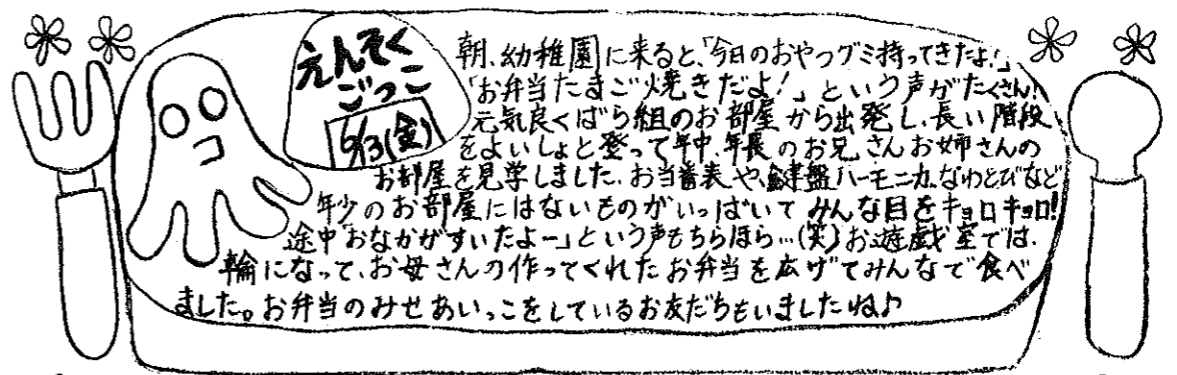 えんそく
ごっこ
5/3(金)
朝、幼稚園に来ると、「今日のおやつグミ持ってきたよ!」
「お弁当たまご焼きだよ!」という声がたくさん!
元気良くばら組のお部屋から出発し、長い階段
をよいしょと登って年中、年長のお兄さんお姉さんの
お部屋を見学しました。お当番表や、鍵盤ハーモニカ、なわとびなど
年少のお部屋にはないものがいっぱいで みんな目をキョロキョロ!
途中「おなかがすいたよー」という声もちらほら…(笑)お遊戯室では、
輪になって、お母さんの作ってくれたお弁当を広げてみんなで食べ
ました。お弁当のみせあいっこをしているお友だちもいましたね♪